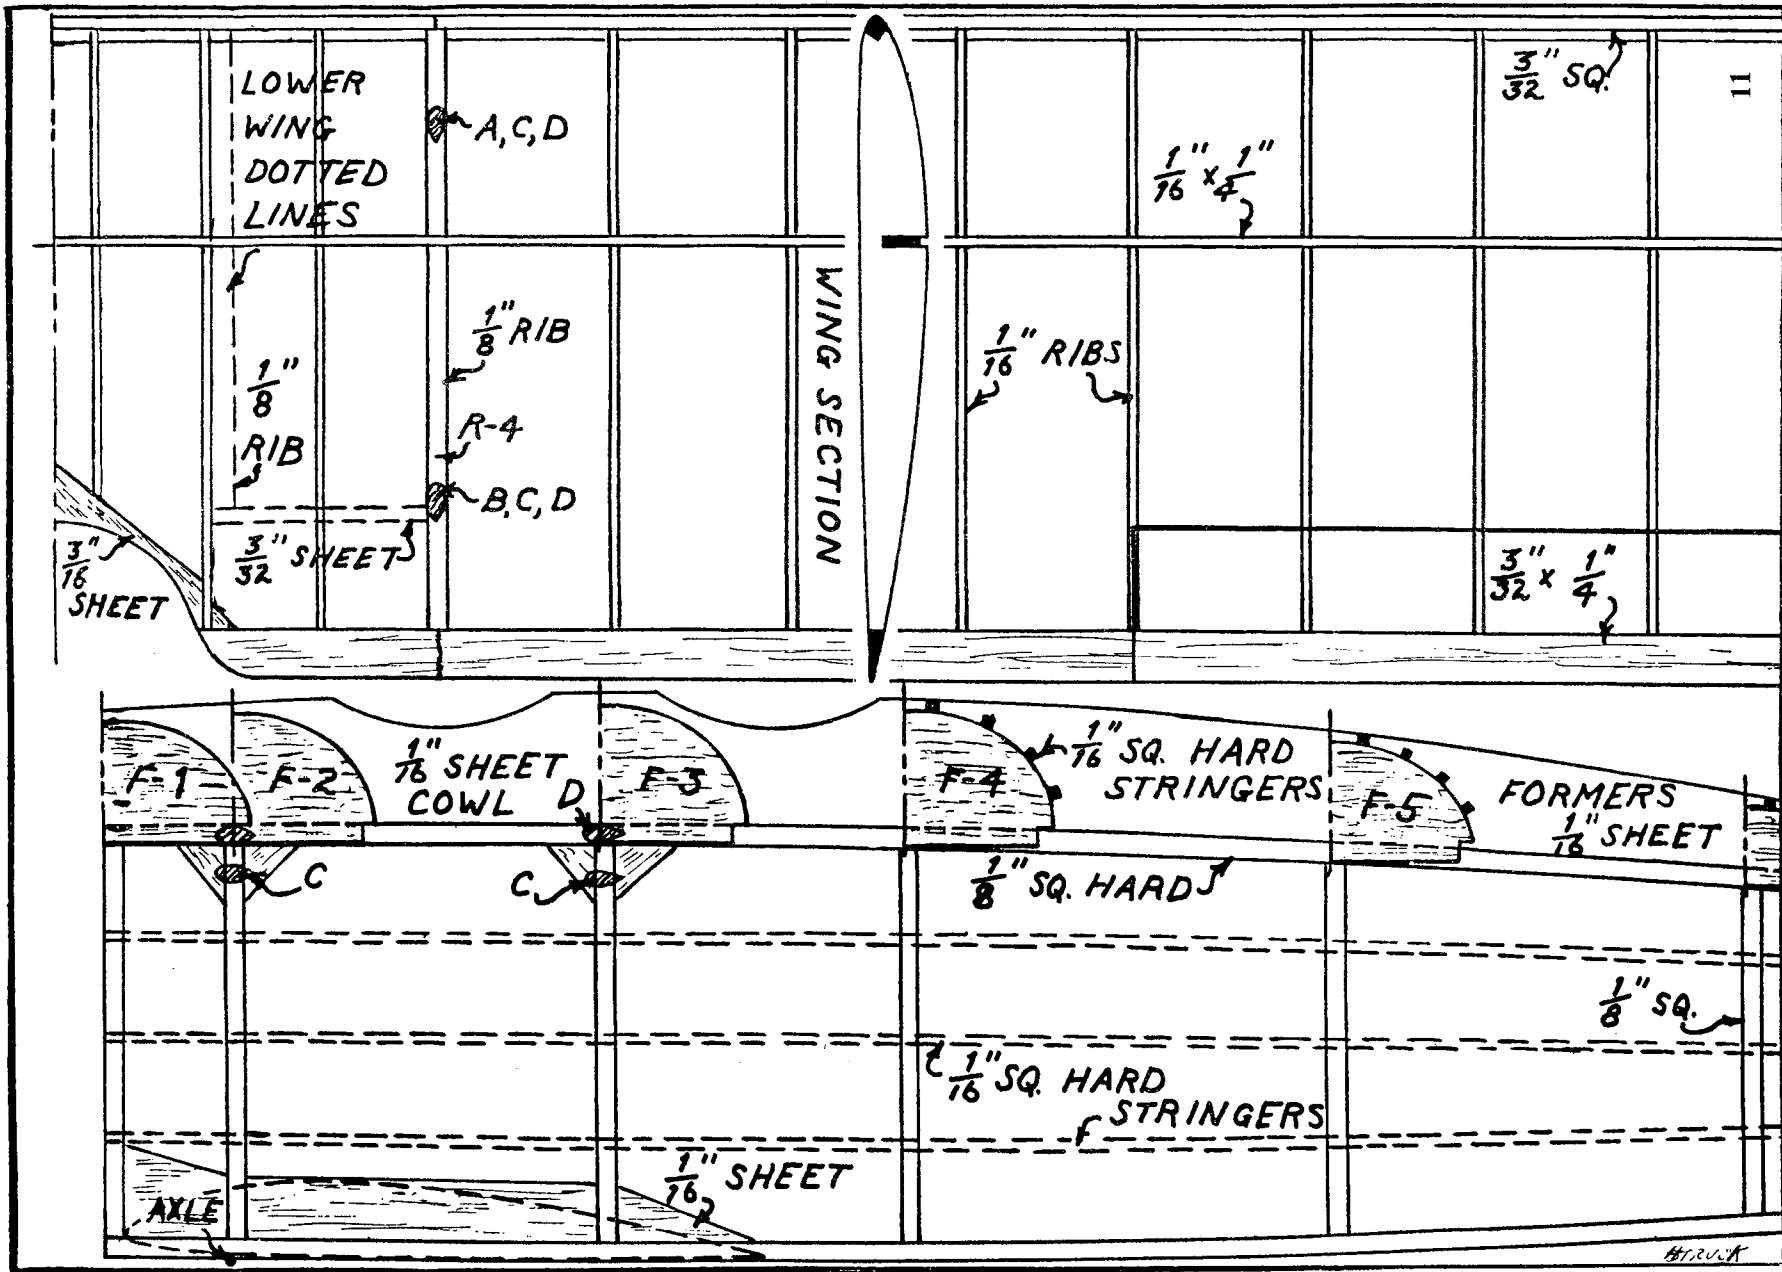 LOWER
WING
DOTTED
LINES
A, C, D
3/32" SQ.
11
1/16" x 1/4"
1/8" RIB
1/8"
RIB
R-4
B, C, D
3/32" SHEET
3/16"
SHEET
WING SECTION
1/16" RIBS
3/32" x 1/4"
F-1
F-2
1/16" SHEET
COWL
D
F-3
F-4
1/16" SQ. HARD
STRINGERS
F-5
FORMERS
1/16" SHEET
C
C
1/8" SQ. HARD
1/8" SQ.
1/16" SQ. HARD
STRINGERS
1/16" SHEET
AXLE